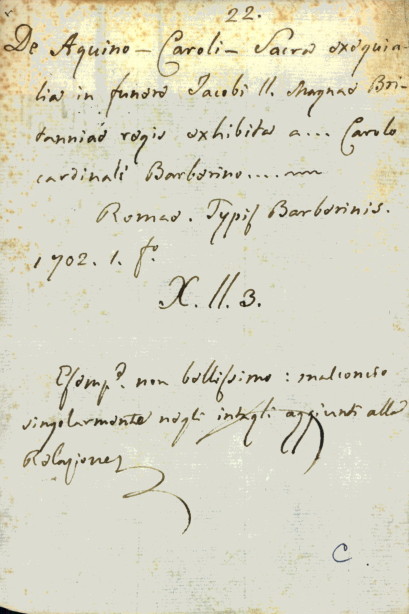 22.
De Aquino - Caroli - Sacra exequia-
lia in funere Jacobi II. Magnae Bri-
tanniae regis exhibita a... Carolo
cardinali Barberino....
Romae. Typis Barberinis.
1702. 1. fo.
X. II. 3.
Esemp.e non bellissimo: malconcio
singolarmente negli intagli aggiunti alla
Relazione
C.